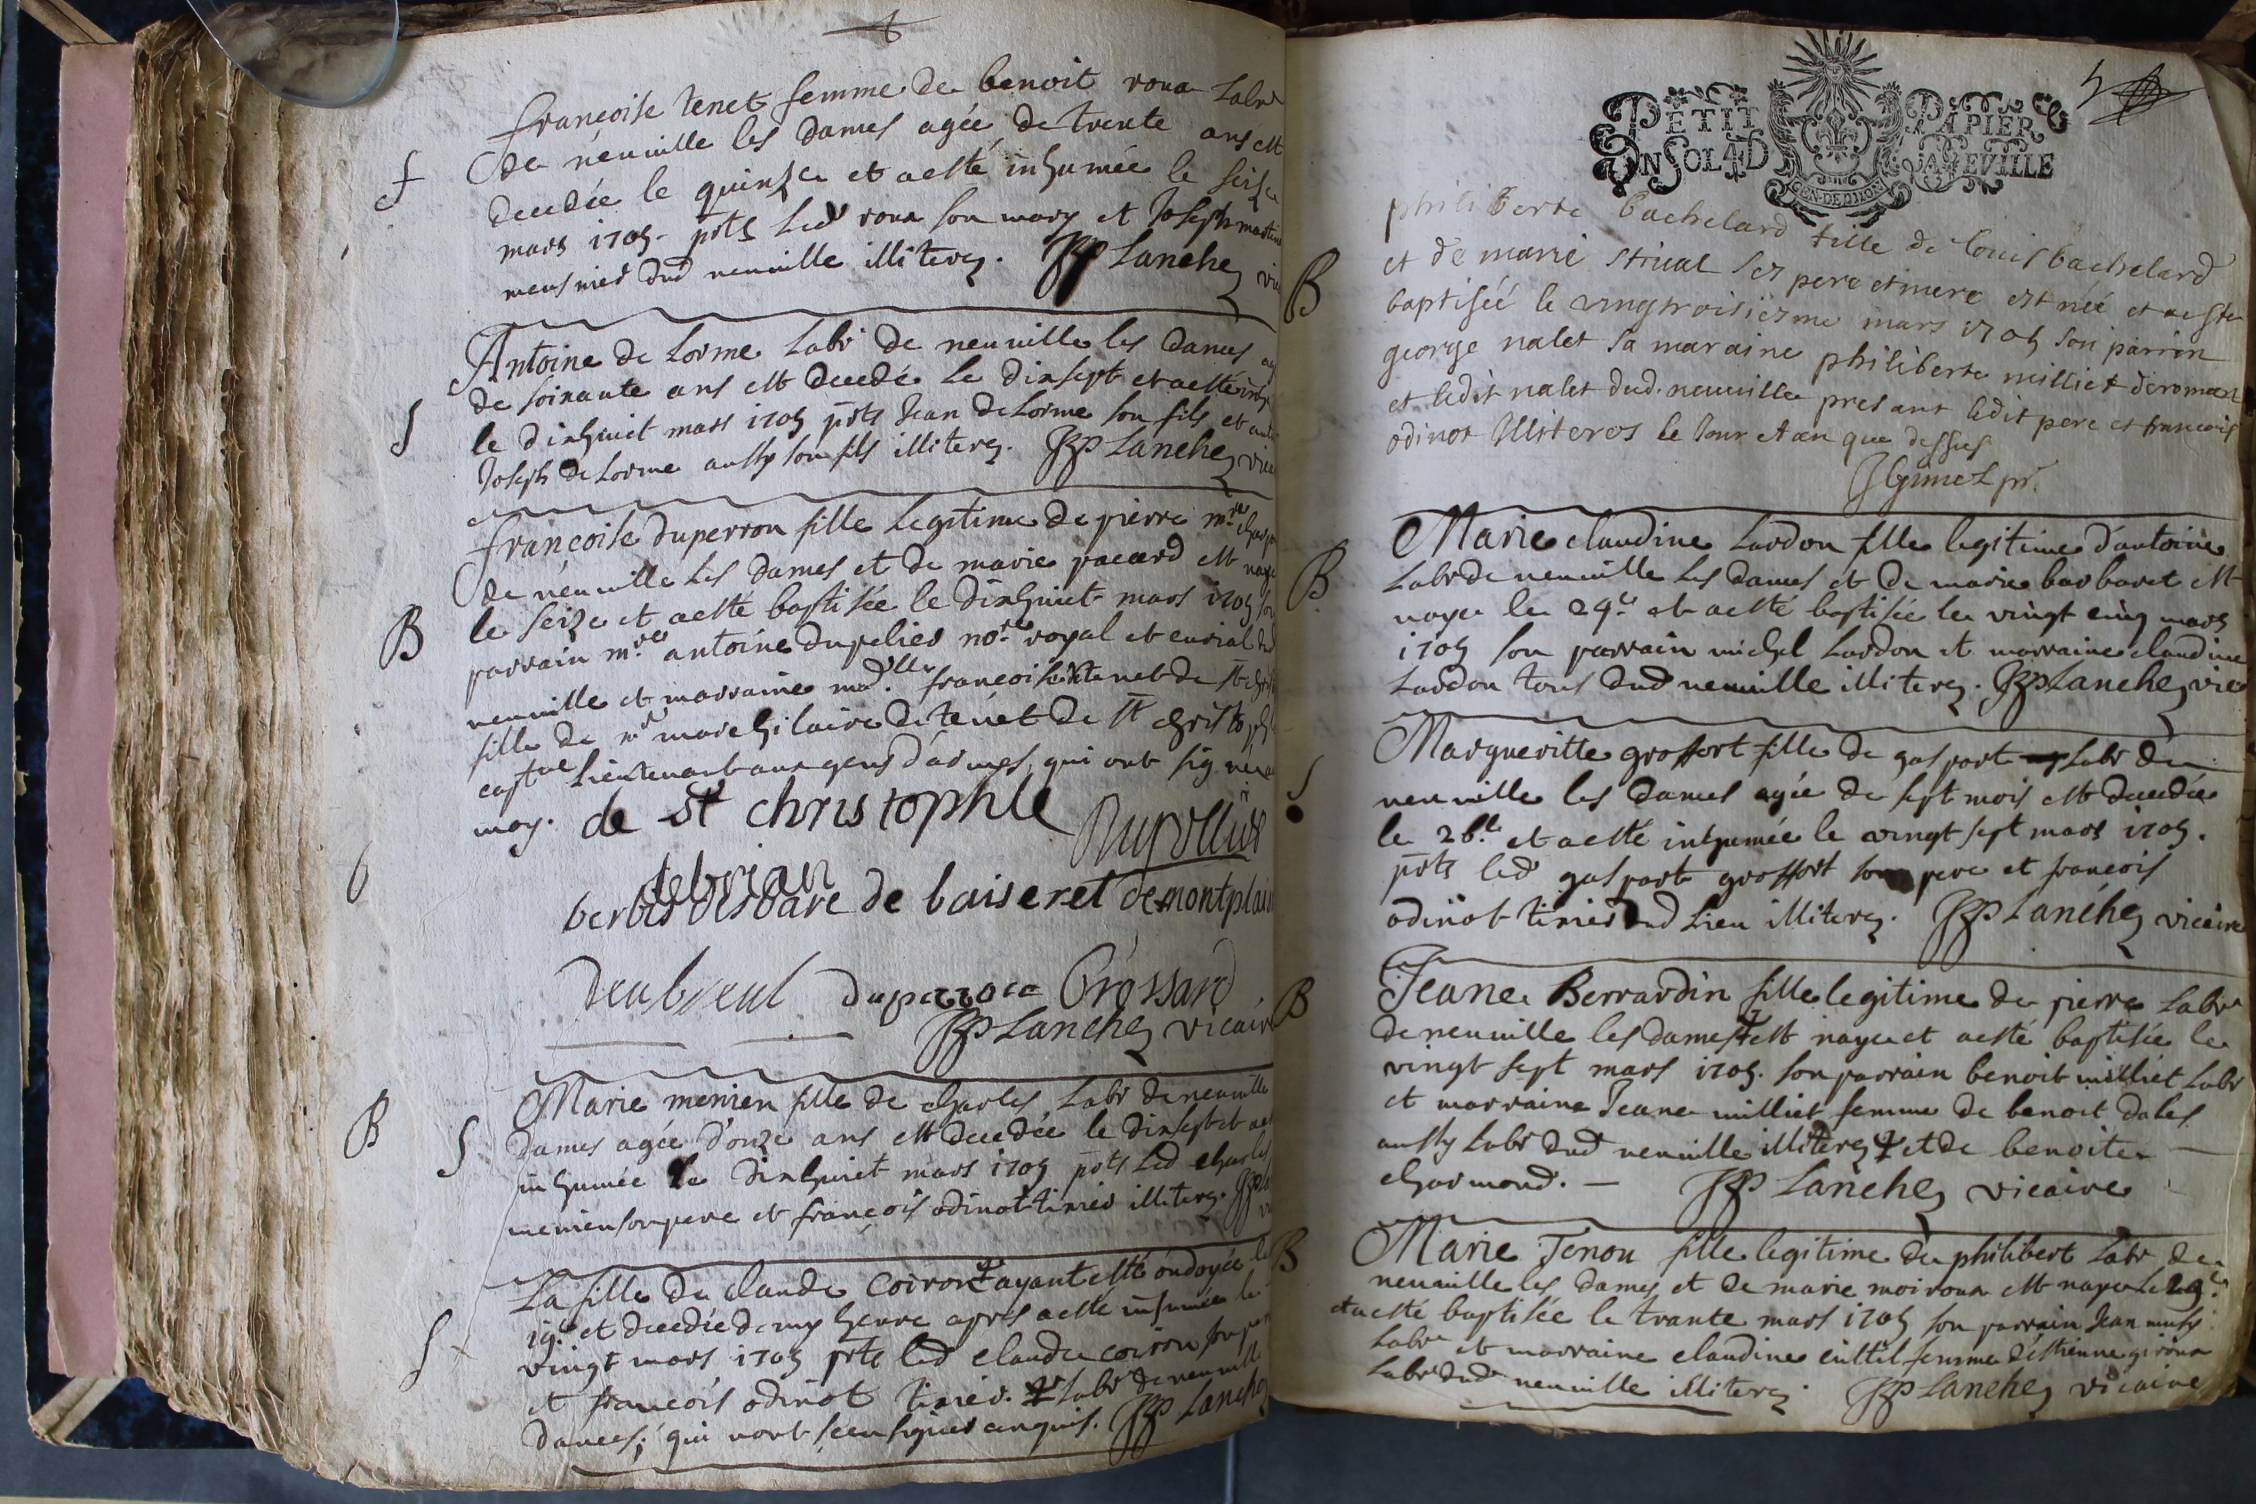 françoise tenet femme de benoit roux Labr
de neuuille les dames agée de trente ans est
decedée le quinze et a esté inhumée le seize
mars 1705. pnts Led roux son mary et Joseph martin
meusnier dud neuuille illiterez. JP Lanchez vic
S
Antoine de Lorme Labr de neuuille les dames
de soixante ans est decedé le dixsept et a esté
le dixhuict mars 1705 pnts Jean de Lorme son fils et
Joseph de Lorme aussy son fils illiterez. JP Lanchez vic
S
françoise duperron fille Legitime de pierre
de neuuille Les dames et de marie pacard est
le seize et a esté baptisée le dixhuict mars 1705 son
B
parrain mre antoine dupelier nore royal et curial dud
neuuille et marraine madlle françoise de tenet de st
fille de mr marc hilaire de tenet de st christophle
Lieutenant aux gens d'armes, qui ont signé
moy. de st christophle
debrian
de baiseret de montplain
dubreul duperron Brossard
JP Lanchez vicair
Marie menien fille de charles Labr de neuuille
B S
dames agée d'onze ans est decedée le dixsept et a
inhumée le dixhuict mars 1705 pnts Led charles
menien son pere et françois odinot tixier illiterez.
La fille de claude coiron ayant esté ondoyée
19e et decedée demy heure apres a esté inhumée le
S
vingt mars 1705 pnts led claude coiron son
et françois odinot tixier. Labr de neuuille
dames; qui n'ont sceu signer enquis. JP Lanchez
PETIT PAPIER
UN SOL 4 D LA FEVILLE
GEN. DE DIJON
5
philiberte bachelard fille de Louis bachelard
B
et de marie striual ses pere et mere est née et a esté
baptiséé le vingtroisiesme mars 1705 son parrin
george nalet sa maraine philiberte milliet de romans
et ledit nalet dud. neuuille presant ledit pere et francois
odinot Illiteres le Jour et an que dessus
JGimet pr.
Marie claudine Lardon fille legitime d'antoine
B
Labr de neuuille Les dames et de marie barbaret est
naye le 24e et a esté baptisée le vingt cinq mars
1705 son parrain michel Lardon et marraine claudine
Lardon tous dud neuuille illiterez. JP Lanchez vic
Margueritte groffort fille de gaspart Labr de
S
neuuille les dames agée de sept mois est decedée
le 26e et a esté inhumée le vingt sept mars 1705.
pnts led gaspart groffort son pere et francois
odinot tixier dud Lieu illiterez. JP Lanchez vicaire
B
Jeane Berrardin fille legitime de pierre Labr
de neuuille les dames est naye et a esté baptisée le
vingt sept mars 1705. son parrain benoit milliet Labr
et marraine Jeane milliet femme de benoit dales
aussy Labr dud neuuille illiterez et de benoite
charmond. JP Lanchez vicaire
B
Marie Tenon fille legitime de philibert Labr de
neuuille les dames et de marie moiroux est naye Le 29e
et a esté baptisée le trante mars 1705 son parrain Jean
Labr et marraine claudine femme d'éstienne giroux
Labr dud neuuille illiterez. JP Lanchez vicaire